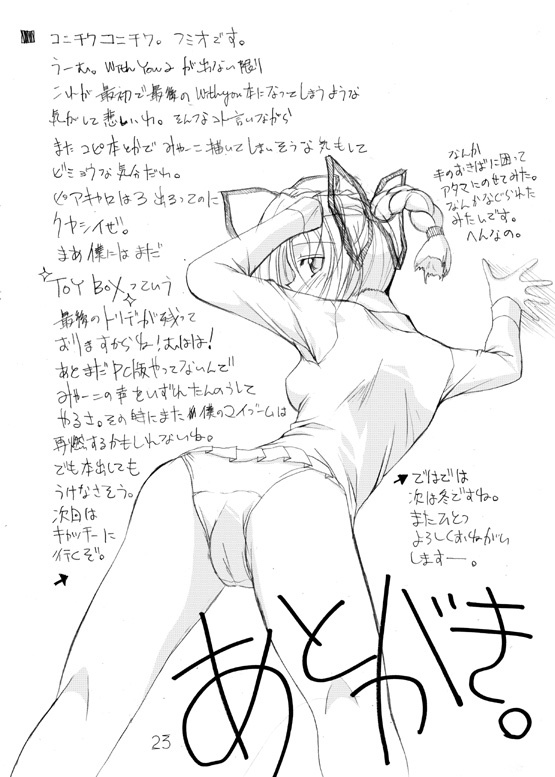 コニチワコニチワ。フミオです。
うーむ。With You 2 が出ない限り
これが最初で最後のWith you本になってしまうような
気がして悲しいわ。そんなコト言いながら
またコピ本とかでみゃーこ描いてしまいそうな気もして
ビミョウな気分だわ。
ピアキャロは3出るってのに
クヤシイぜ。
まあ僕にはまだ
TOY BOXっていう
最後のトリデが残って
おりますからね!むはは!
あとまだPC版やってないんで
みゃーこの声をいずれたんのうして
やるさ。その時にまた僕のマイブームは
再燃するかもしれないね。
でも本出しても
うけなさそう。
次回は
キャッチーに
行くぞ。
なんか
手のおきばに困って
アタマにのせてみた。
なんかなぐられた
みたいです。
へんなの。
ではでは
次は冬ですね。
またひとつ
よろしくおねがい
しますー。
あとがき。
23